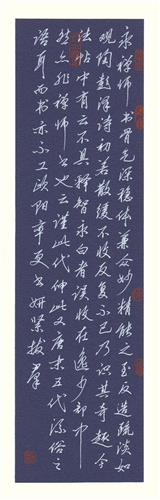 永禪師書骨氣深穩體兼眾妙精能之至反造疏淡如
觀陶彭澤詩初若散緩不收反覆不已乃識其奇趣今
法帖中有云不具釋智永白者誤收在逸少部中
然亦非禪師書也云謹此代申此乃唐末五代流俗之
語耳而書亦不工歐陽率更書妍緊拔群